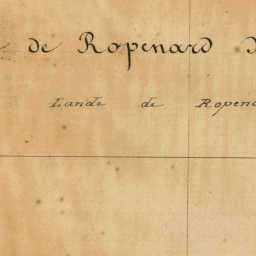 de Ropenard
Lande de Ropen